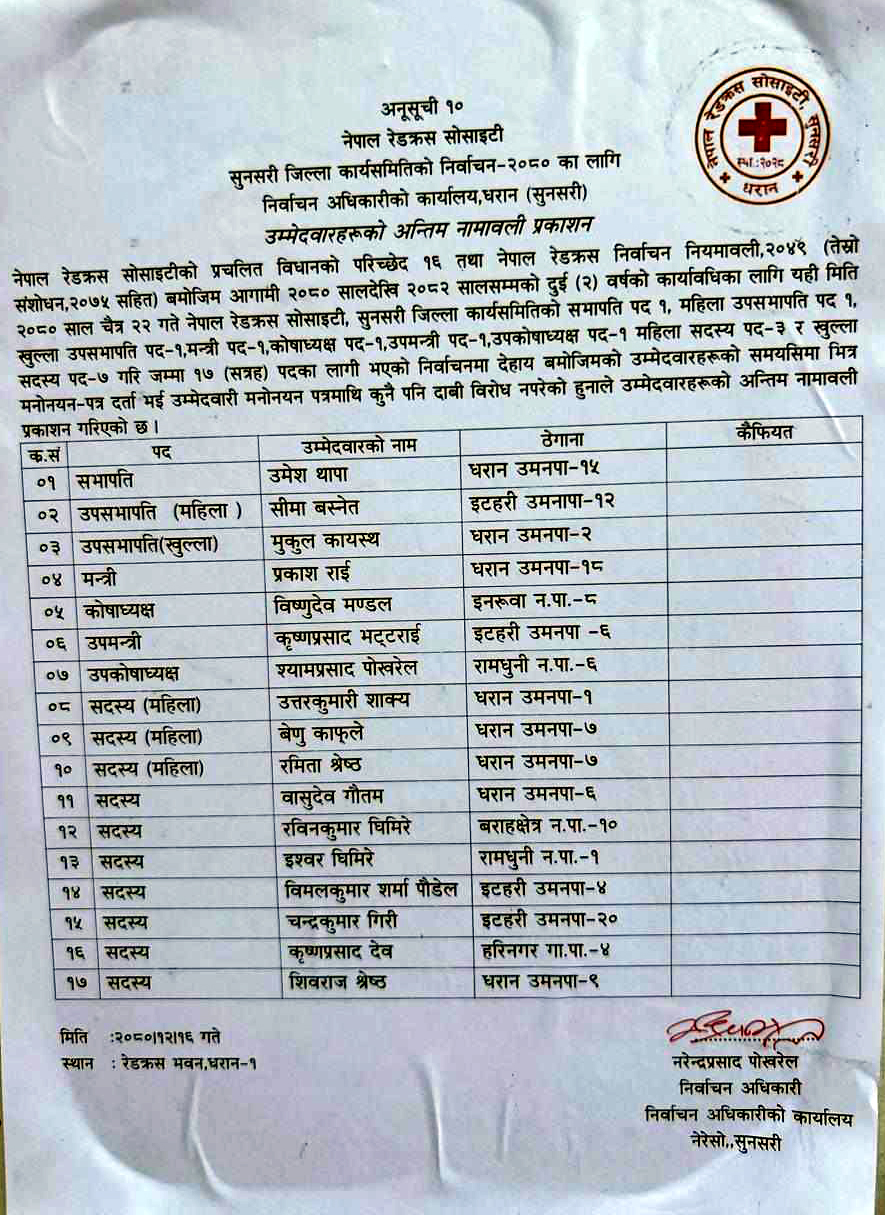 अनूसूची १०
नेपाल रेडक्रस सोसाइटी
सुनसरी जिल्ला कार्यसमितिको निर्वाचन-२०८० का लागि
निर्वाचन अधिकारीको कार्यालय,धरान (सुनसरी)
उम्मेदवारहरूको अन्तिम नामावली प्रकाशन
नेपाल रेडक्रस सोसाइटी, सुनसरी
स्था.:२०२८
धरान
नेपाल रेडक्रस सोसाइटीको प्रचलित विधानको परिच्छेद १६ तथा नेपाल रेडक्रस निर्वाचन नियमावली,२०४९ (तेस्रो
संशोधन,२०७५ सहित) बमोजिम आगामी २०८० सालदेखि २०८२ सालसम्मको दुई (२) वर्षको कार्यावधिका लागि यही मिति
२०८० साल चैत्र २२ गते नेपाल रेडक्रस सोसाइटी, सुनसरी जिल्ला कार्यसमितिको सभापति पद १, महिला उपसभापति पद १,
खुल्ला उपसभापति पद-१,मन्त्री पद-१,कोषाध्यक्ष पद-१,उपमन्त्री पद-१,उपकोषाध्यक्ष पद-१ महिला सदस्य पद-३ र खुल्ला
सदस्य पद-७ गरि जम्मा १७ (सत्रह) पदका लागी भएको निर्वाचनमा देहाय बमोजिमको उम्मेदवारहरूको समयसिमा भित्र
मनोनयन-पत्र दर्ता भई उम्मेदवारी मनोनयन पत्रमाथि कुनै पनि दाबी विरोध नपरेको हुनाले उम्मेदवारहरूको अन्तिम नामावली
प्रकाशन गरिएको छ।
क.सं पद उम्मेदवारको नाम ठेगाना कैफियत
०१ सभापति उमेश थापा धरान उमनपा-१५
०२ उपसभापति (महिला ) सीमा बस्नेत इटहरी उमनापा-१२
०३ उपसभापति(खुल्ला) मुकुल कायस्थ धरान उमनपा-२
०४ मन्त्री प्रकाश राई धरान उमनपा-१८
०५ कोषाध्यक्ष विष्णुदेव मण्डल इनरूवा न.पा.-८
०६ उपमन्त्री कृष्णप्रसाद भट्टराई इटहरी उमनपा -६
०७ उपकोषाध्यक्ष श्यामप्रसाद पोखरेल रामधुनी न.पा.-६
०८ सदस्य (महिला) उत्तरकुमारी शाक्य धरान उमनपा-१
०९ सदस्य (महिला) बेणु काफ्ले धरान उमनपा-७
१० सदस्य (महिला) रमिता श्रेष्ठ धरान उमनपा-७
११ सदस्य वासुदेव गौतम धरान उमनपा-६
१२ सदस्य रविनकुमार घिमिरे बराहक्षेत्र न.पा.-१०
१३ सदस्य इश्वर घिमिरे रामधुनी न.पा.-१
१४ सदस्य विमलकुमार शर्मा पौडेल इटहरी उमनपा-४
१५ सदस्य चन्द्रकुमार गिरी इटहरी उमनपा-२०
१६ सदस्य कृष्णप्रसाद देव हरिनगर गा.पा.-४
१७ सदस्य शिवराज श्रेष्ठ धरान उमनपा-९
मिति :२०८०।१२।१६ गते
स्थान : रेडक्रस भवन,धरान-१
नरेन्द्रप्रसाद पोखरेल
निर्वाचन अधिकारी
निर्वाचन अधिकारीको कार्यालय
नेरेसो,,सुनसरी